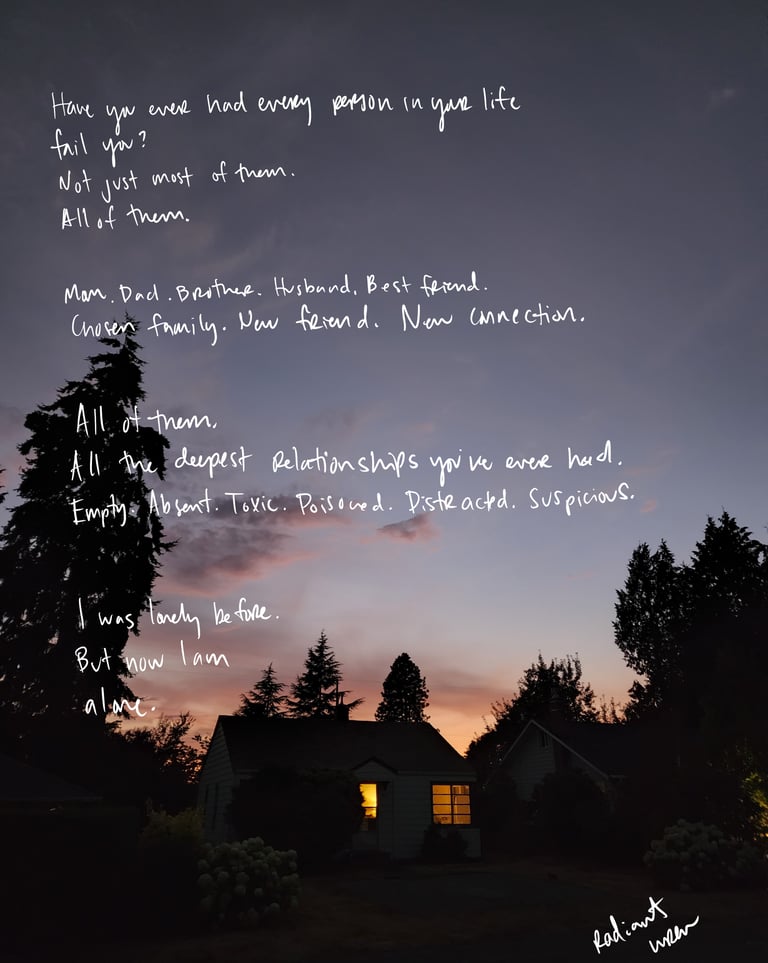 Have you ever had every person in your life
fail you?
Not just most of them.
All of them.
Mom. Dad. Brother. Husband. Best friend.
Chosen family. New friend. New connection.
All of them.
All the deepest relationships you've ever had.
Empty. Absent. Toxic. Poisoned. Distracted. Suspicious.
I was lonely before.
But now I am
alone.
Radiant
wren